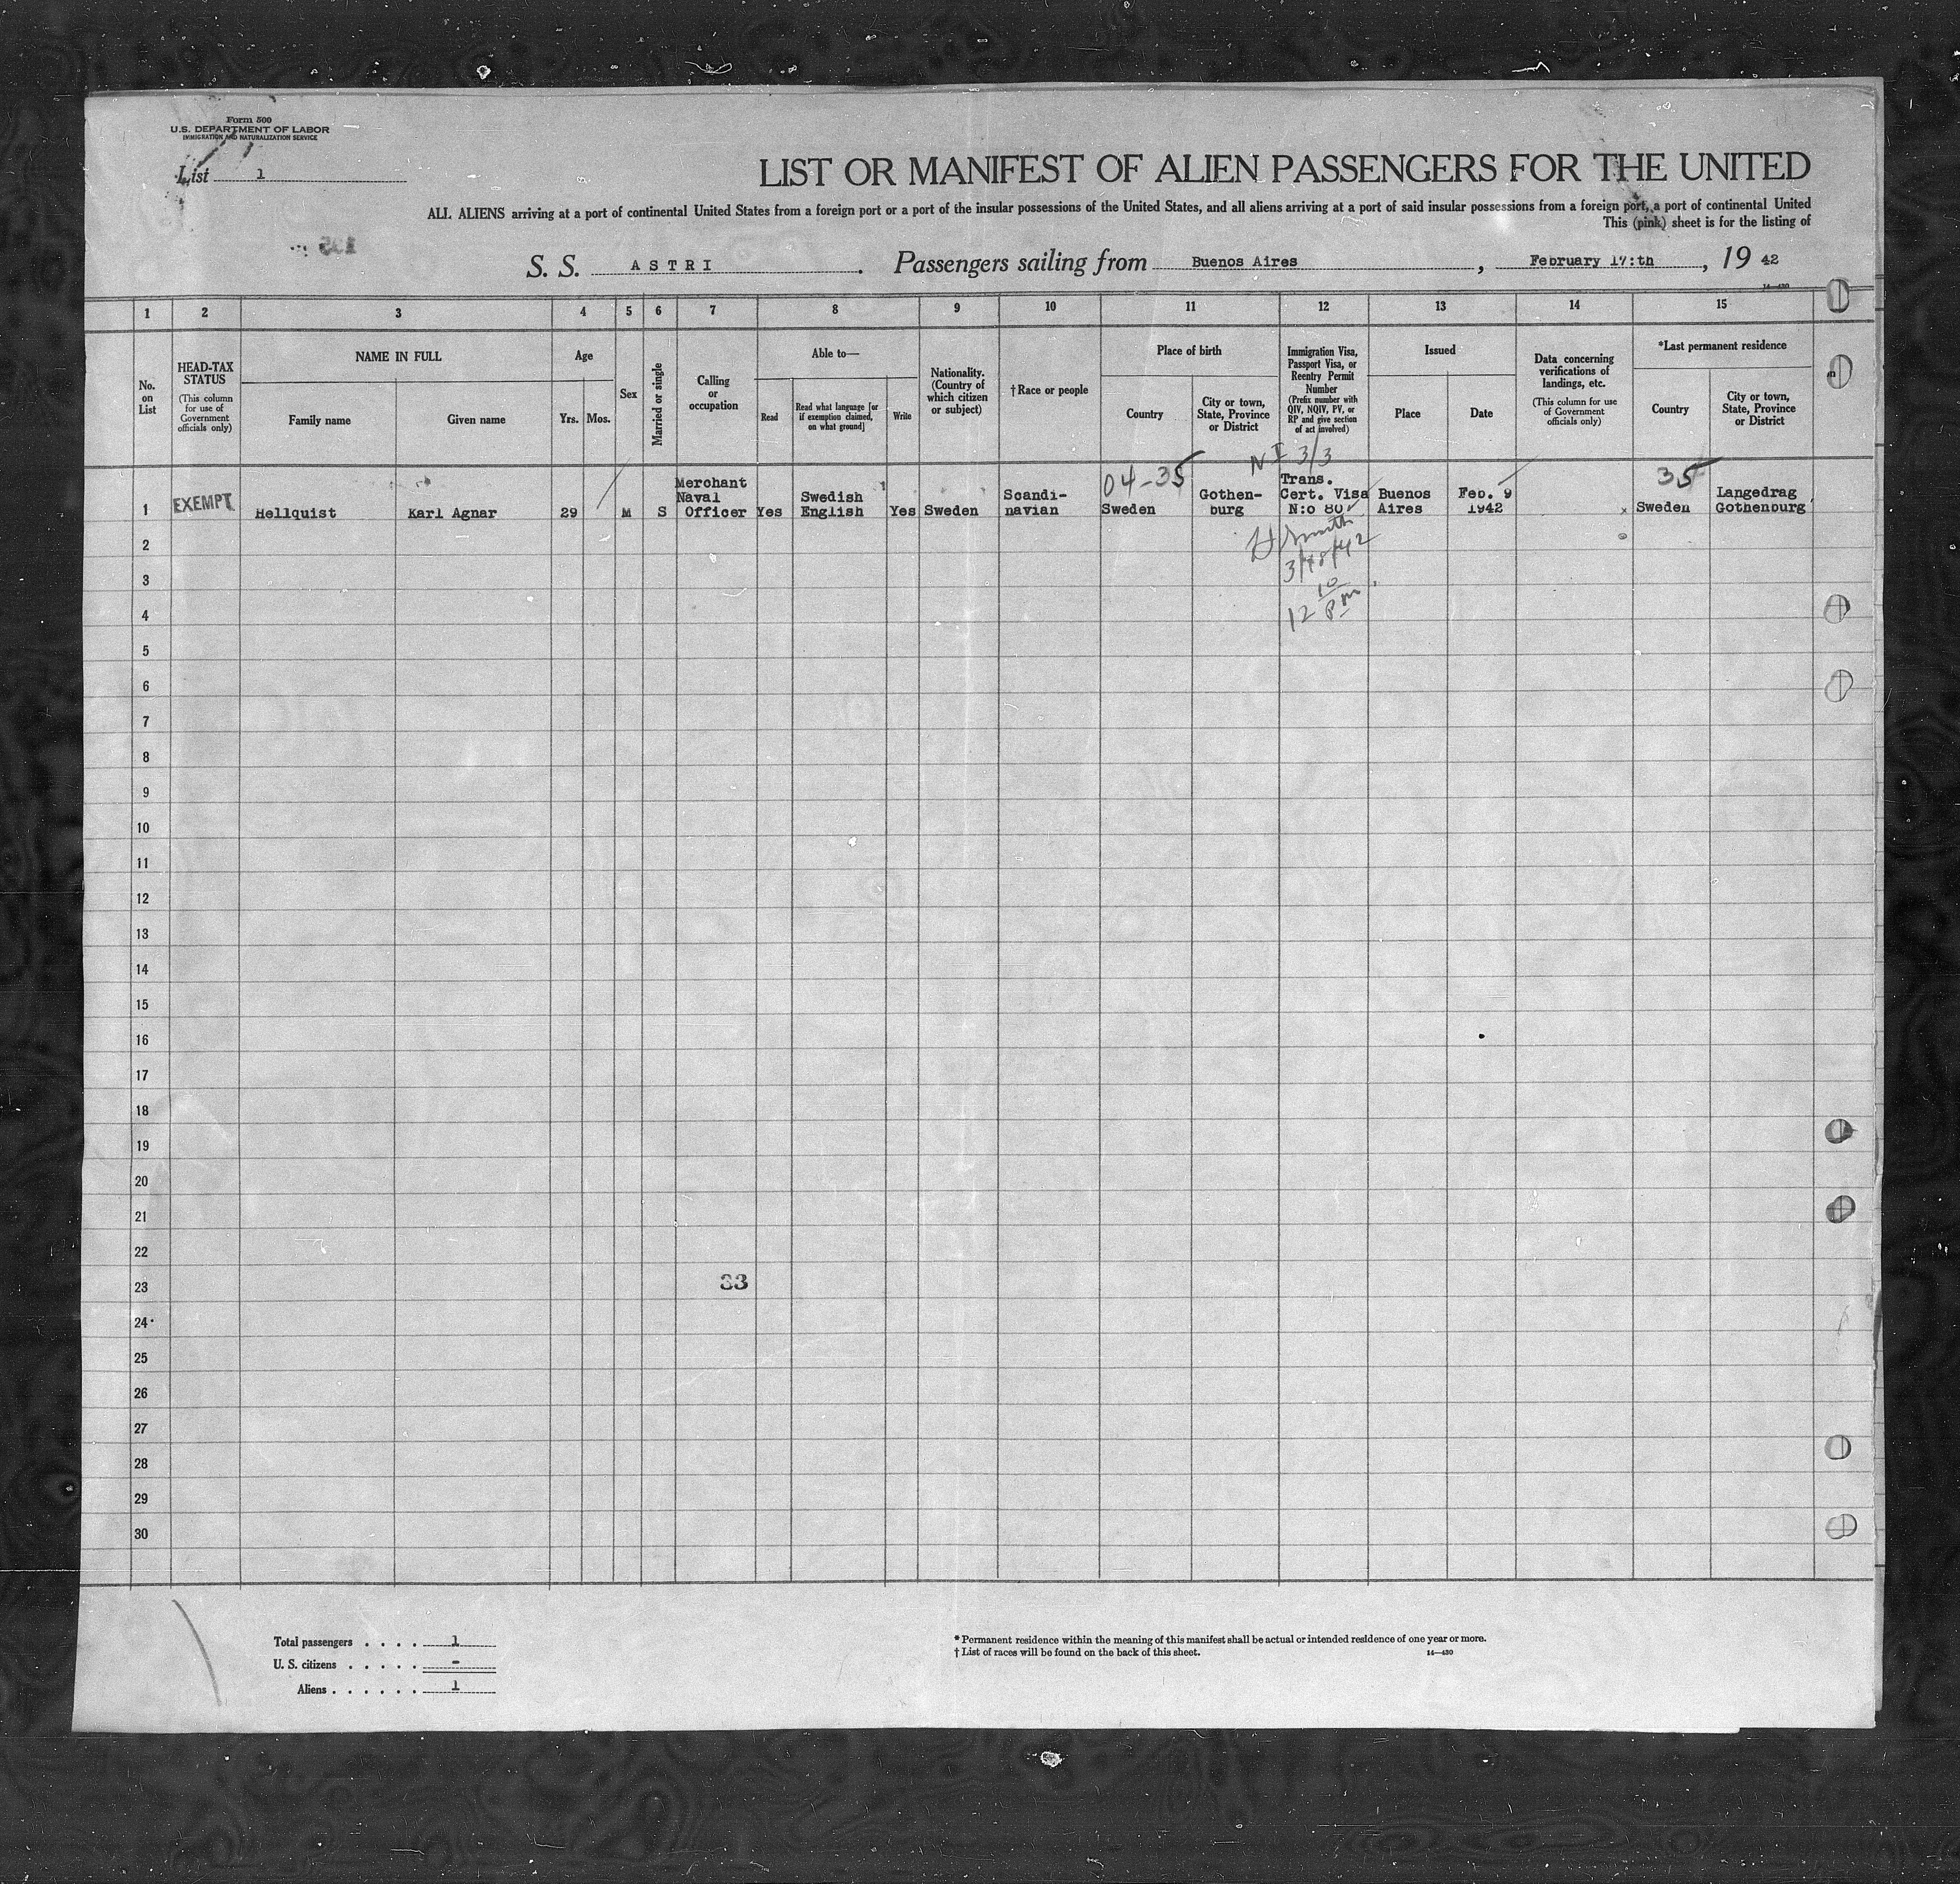 Form 500
U.S. DEPARTMENT OF LABOR
IMMIGRATION AND NATURALIZATION SERVICE
List 1
LIST OR MANIFEST OF ALIEN PASSENGERS FOR THE UNITED
ALL ALIENS arriving at a port of continental United States from a foreign port or a port of the insular possessions of the United States, and all aliens arriving at a port of said insular possessions from a foreign port, a port of continental United
This (pink) sheet is for the listing of
S. S. ASTRI. Passengers sailing from Buenos Aires, February 17:th, 19 42
14—430
1 2 3 4 5 6 7 8 9 10 11 12 13 14 15
No. on List
HEAD-TAX STATUS
(This column for use of Government officials only)
NAME IN FULL
Family name
Given name
Age
Yrs. Mos.
Sex
Married or single
Calling or occupation
Able to—
Read
Read what language [or if exemption claimed, on what ground]
Write
Nationality. (Country of which citizen or subject)
†Race or people
Place of birth
Country
City or town, State, Province or District
Immigration Visa, Passport Visa, or Reentry Permit Number
(Prefix number with QIV, NQIV, PV, or RP and give section of act involved)
Issued
Place
Date
Data concerning verifications of landings, etc.
(This column for use of Government officials only)
*Last permanent residence
Country
City or town, State, Province or District
NI 3/3
04-35
35
1 EXEMPT Hellquist Karl Agnar 29 M S Merchant Naval Officer Yes Swedish English Yes Sweden Scandi-navian Sweden Gothen-burg Trans. Cert. Visa N:o 80 Buenos Aires Feb. 9 1942 x Sweden Langedrag Gothenburg
Smith
12 10 Pm
2
3
4
5
6
7
8
9
10
11
12
13
14
15
16
17
18
19
20
21
22
23
33
24
25
26
27
28
29
30
Total passengers . . . . 1
U. S. citizens . . . . . -
Aliens . . . . . . 1
* Permanent residence within the meaning of this manifest shall be actual or intended residence of one year or more.
† List of races will be found on the back of this sheet.
14—430